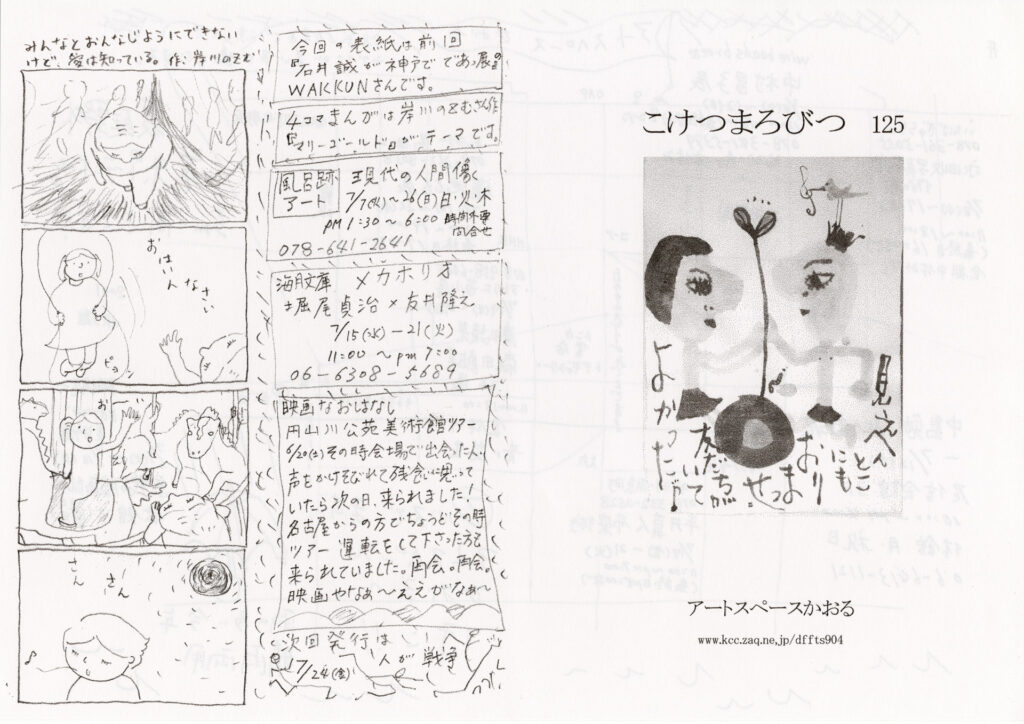 みんなとおんなじようにできない
けど、愛は知っている。作: 岸川のぞむ
おはいんなさい
ピョン
お
さん さん
今回の表紙は前回
『石井誠が神戸でであっ展』の
WAKKUNさんです。
4コマまんがは岸川のぞむさん作
『マリーゴールド』がテーマです。
風呂跡
アート
現代の人間像
7/7(火)〜26(日)日・火・木
PM 1:30〜6:00
078-641-2641
海月文庫 メカホリオ
堀尾貞治×友井隆之
7/15(水)−21(火)
11:00〜pm 7:00
06-6308-5689
映画なおはなし
円山川公苑美術館ツアー
6/20(土)その時会場で出会った人に
声をかけそびれて残念に思って
いたら次の日、来られました!
名古屋からの方でちょうどその時
ツアー運転をして下さった方も
来られていました。再会。再会。
映画やなぁ〜ええがなぁ〜
次回発行は
7/24(金)
人が戦争
こけつまろびつ 125
見えへん
とこにも
おり
まっせ
友だちが
いて
よかった
アートスペースかおる
www.kcc.zaq.ne.jp/dffts904